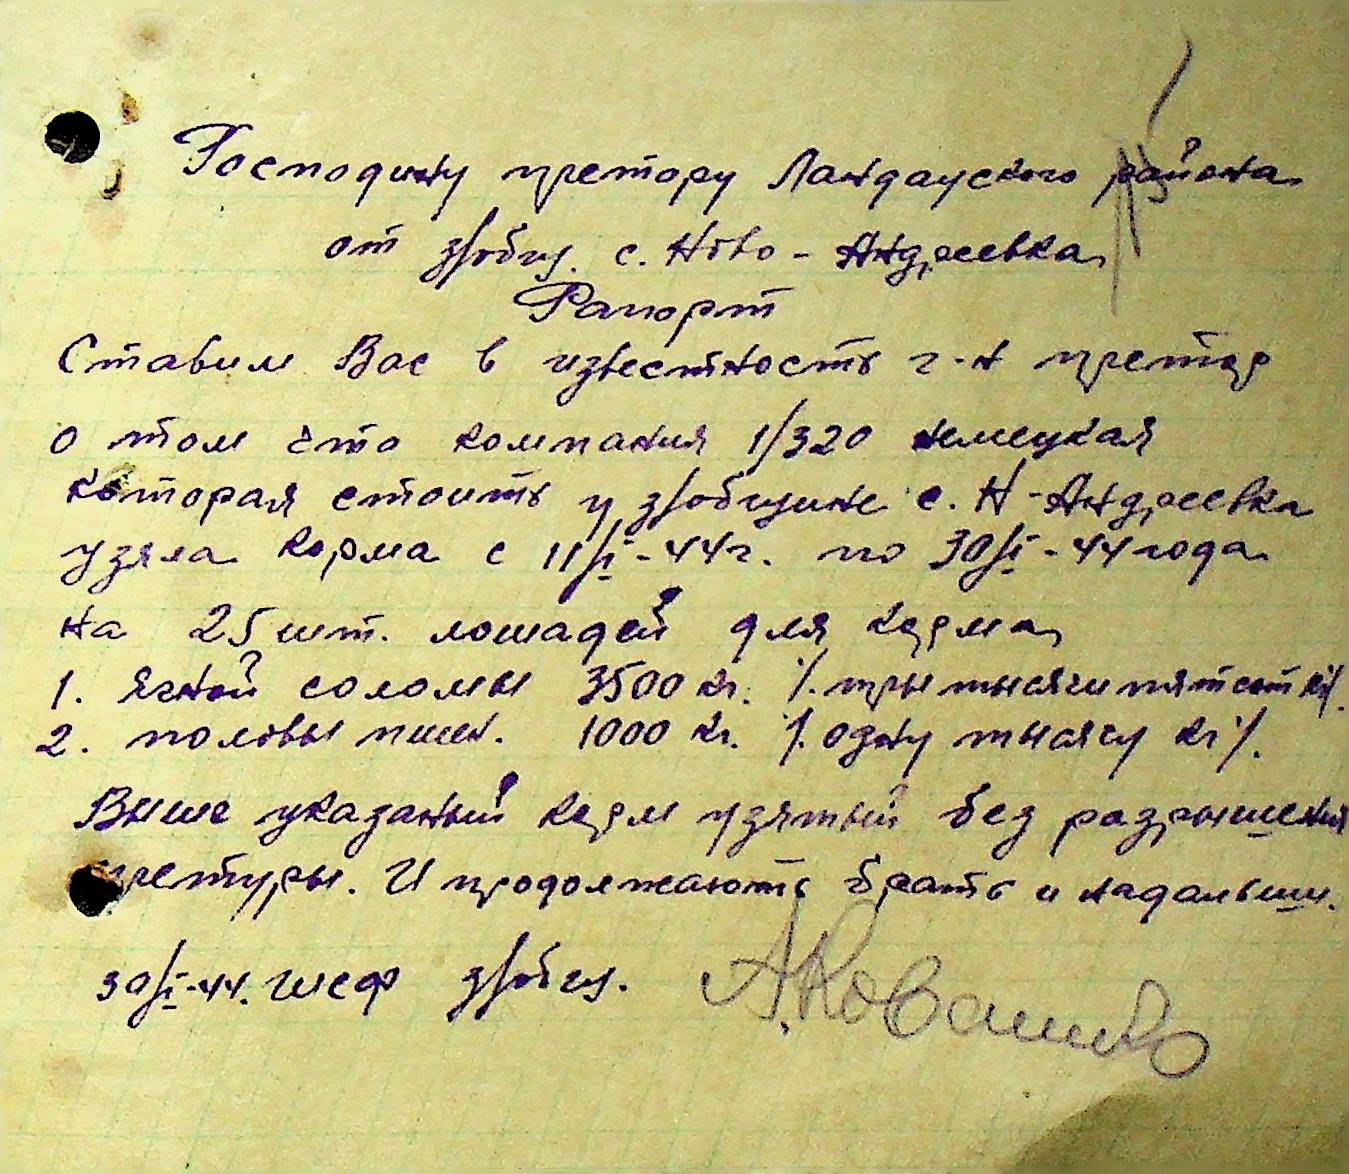 Господину претору Ландауского района
от з/общ. с. Ново-Андреевка
Рапорт
Ставим Вас в известность г-н претор
о том что компания 1/320 немецкая
которая стоить у з/общине с. Н-Андреевка
узяла корма с 11/I-44г. по 30/I-44 года
на 25 шт. лошадей для корма
1. ячной соломы 3500 кг. /. три тысячи пятсот кг/.
2. половы пшен. 1000 кг. /. одну тысячу кг/.
Выше указаный корм узятый без разрышения
претуры. И продолжають брать и надальши.
30/I-44. Шеф з/общ.